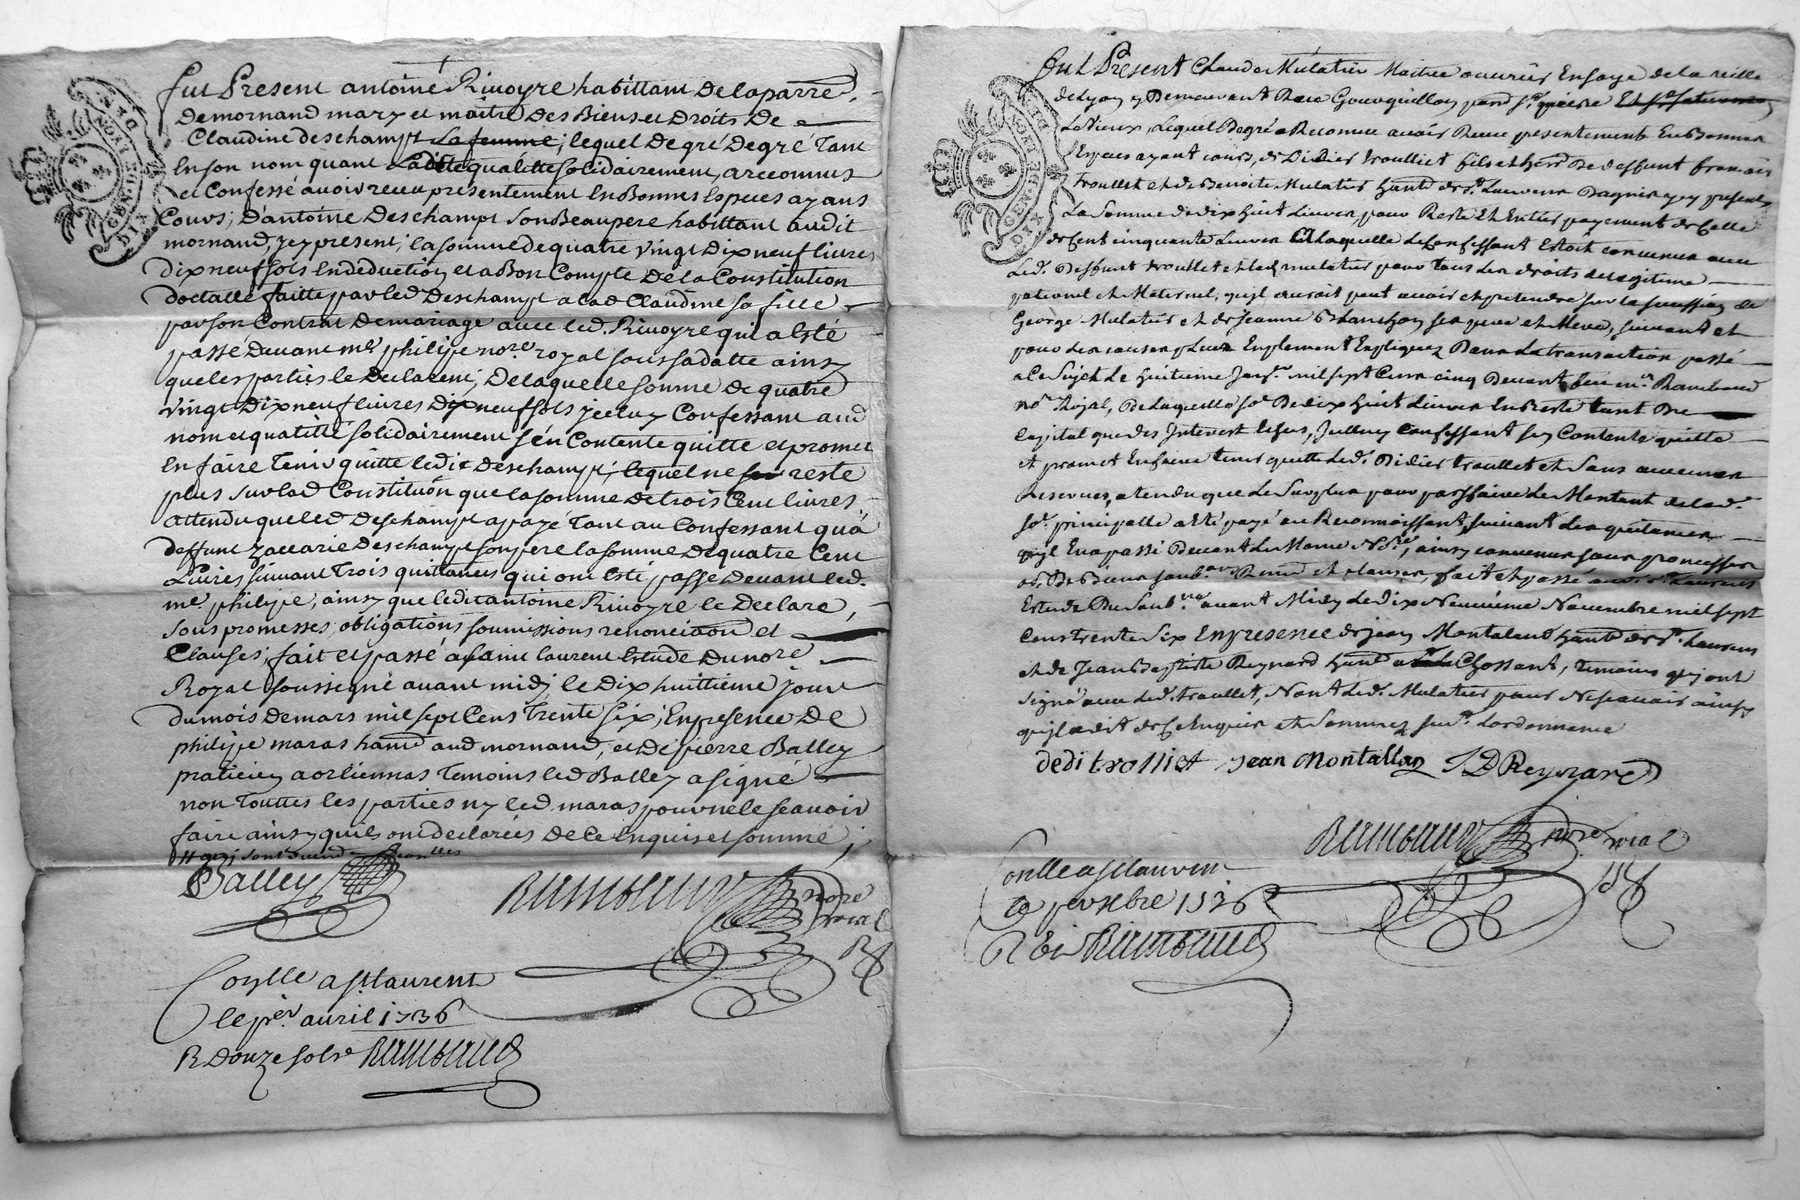 fut Present antoine Rivoyre habittant Delaparre.
Demornand mary et maitre Des Biens et Droits De
Claudine deschampt La femme; lequel De gré Degré Tant
En son nom quant qualitté solidairement, a reconnus
et Confessé avoir receu presentement En Bonnes Especes ayans
Cours; D'antoine Deschampt Son Beaupere habittant audit
mornand, yey present, la somme de quatre vingt Dix neuf livres
Dix neuf sols En deduction et a Bon Compte De la Constitution
Doctalle faitte par led Deschampt a lad Claudine sa fille
par son Contrat De mariage avec led. Rivoyre qui a Esté
passé Devant me philipe nore royal sous sa datte ainsy
que les parties le Declarent; De laquelle somme De quatre
vingt Dix neuf livres Dix neuf sols yceluy Confessant aud
nom et qualitté solidairement s'en Contente quitte et promet
En faire Tenir quitte ledit Deschampt; lequel ne reste
plus sur lad Constitution que la somme De trois Cent livres
attendu que led Deschampt a payé Tant au Confessant qu'à
deffunt Zaccarie Deschampt son pere la somme De quatre Cent
Livres suivant Trois quittances qui ont Esté passé Devant led.
me philipe, ainsy que ledit antoine Rivoyre le Declare,
sous promesses, obligations soumissions renonciaon et
Clauses; fait et passé a saint laurent Estude Du nore
Royal soussigné avant midj le Dix huittieme jour
du mois De mars mil sept Cens Trente six; En presence De
philipe maras hant aud mornand, et De pierre Balley
praticien a orliennas Temoins led Balley a signé
non Touttes les parties ny led maras pour ne le scavoir
faire ainsy qu'ils ont declarées De Ce Enquis et sommé;
Balley Rambaud nore roial
Conlle a St laurent
le per avril 1736
R Douze sols Rambaud
fut Present Claude Mulatier Maitre ouvrier En soye de la ville
de Lyon y Demeurant Rue Gourguillon
Le vieux, Lequel De gré a Reconnu avoir Receu presentement En Bonnes
Especes ayant cours, de Didier trouilliet fils et hers De deffunt francois
trouillet et de Benoite Mulatier hant de St Laurens Dagny yey present
La Somme de dix huit Livres, pour Reste Et Entier payement de Celle
de Cent cinquante Livres a Laquelle Le Confessant Estoit convenu avec
Led. Deffunt trouillet et lad mulatier pour tous les droits de legitime
paternel et Maternel, qu'il auroit peut avoir et pretendre sur la succession de
George Mulatier et de Jeanne Blanchon ses pere et Mere, suivant et
pour les causes plus Emplement Expliquez Dans La transaction passé
a Ce Sujet Le huitieme mil sept Cens cinq Devant feu me Rambaud
nore Royal, De Laquelle so. De dix huit Livres En Reste tant De
Capital que des Interest
et promet En faire tenir quitte Led. Didier trouillet et Sans aucunes
Reserves, atendu que Le Surplus pour parffaire Le Montant de lad.
so. principalle a Esté payé au Reconnoissant, suivant Les quitances
qu'il En a passé Devant Le Meme Nore, ainsy convenu sous promesses
ob. De Biens soub. Renon et clauses, fait et passé a St Laurens
Estude Du Soub.né avant Midy Le dix Neuvieme Novembre mil sept
Cens trente Six En presence de Jean Montaland hant de St. Laurens
et de Jean Baptiste Reynard hant a Chossant, temoins qui ont
Signé avec Led. trouillet, Non Led. Mulatier pour Ne scavoir ainsy
qu'il a dit de Ce Enquis et Sommez suit Lordonnance
dedi trolliet Jean Montallan J B Reynard
Rambaud nore roial
Conlle a St Lauren
le xbre 1736
R Rambaud